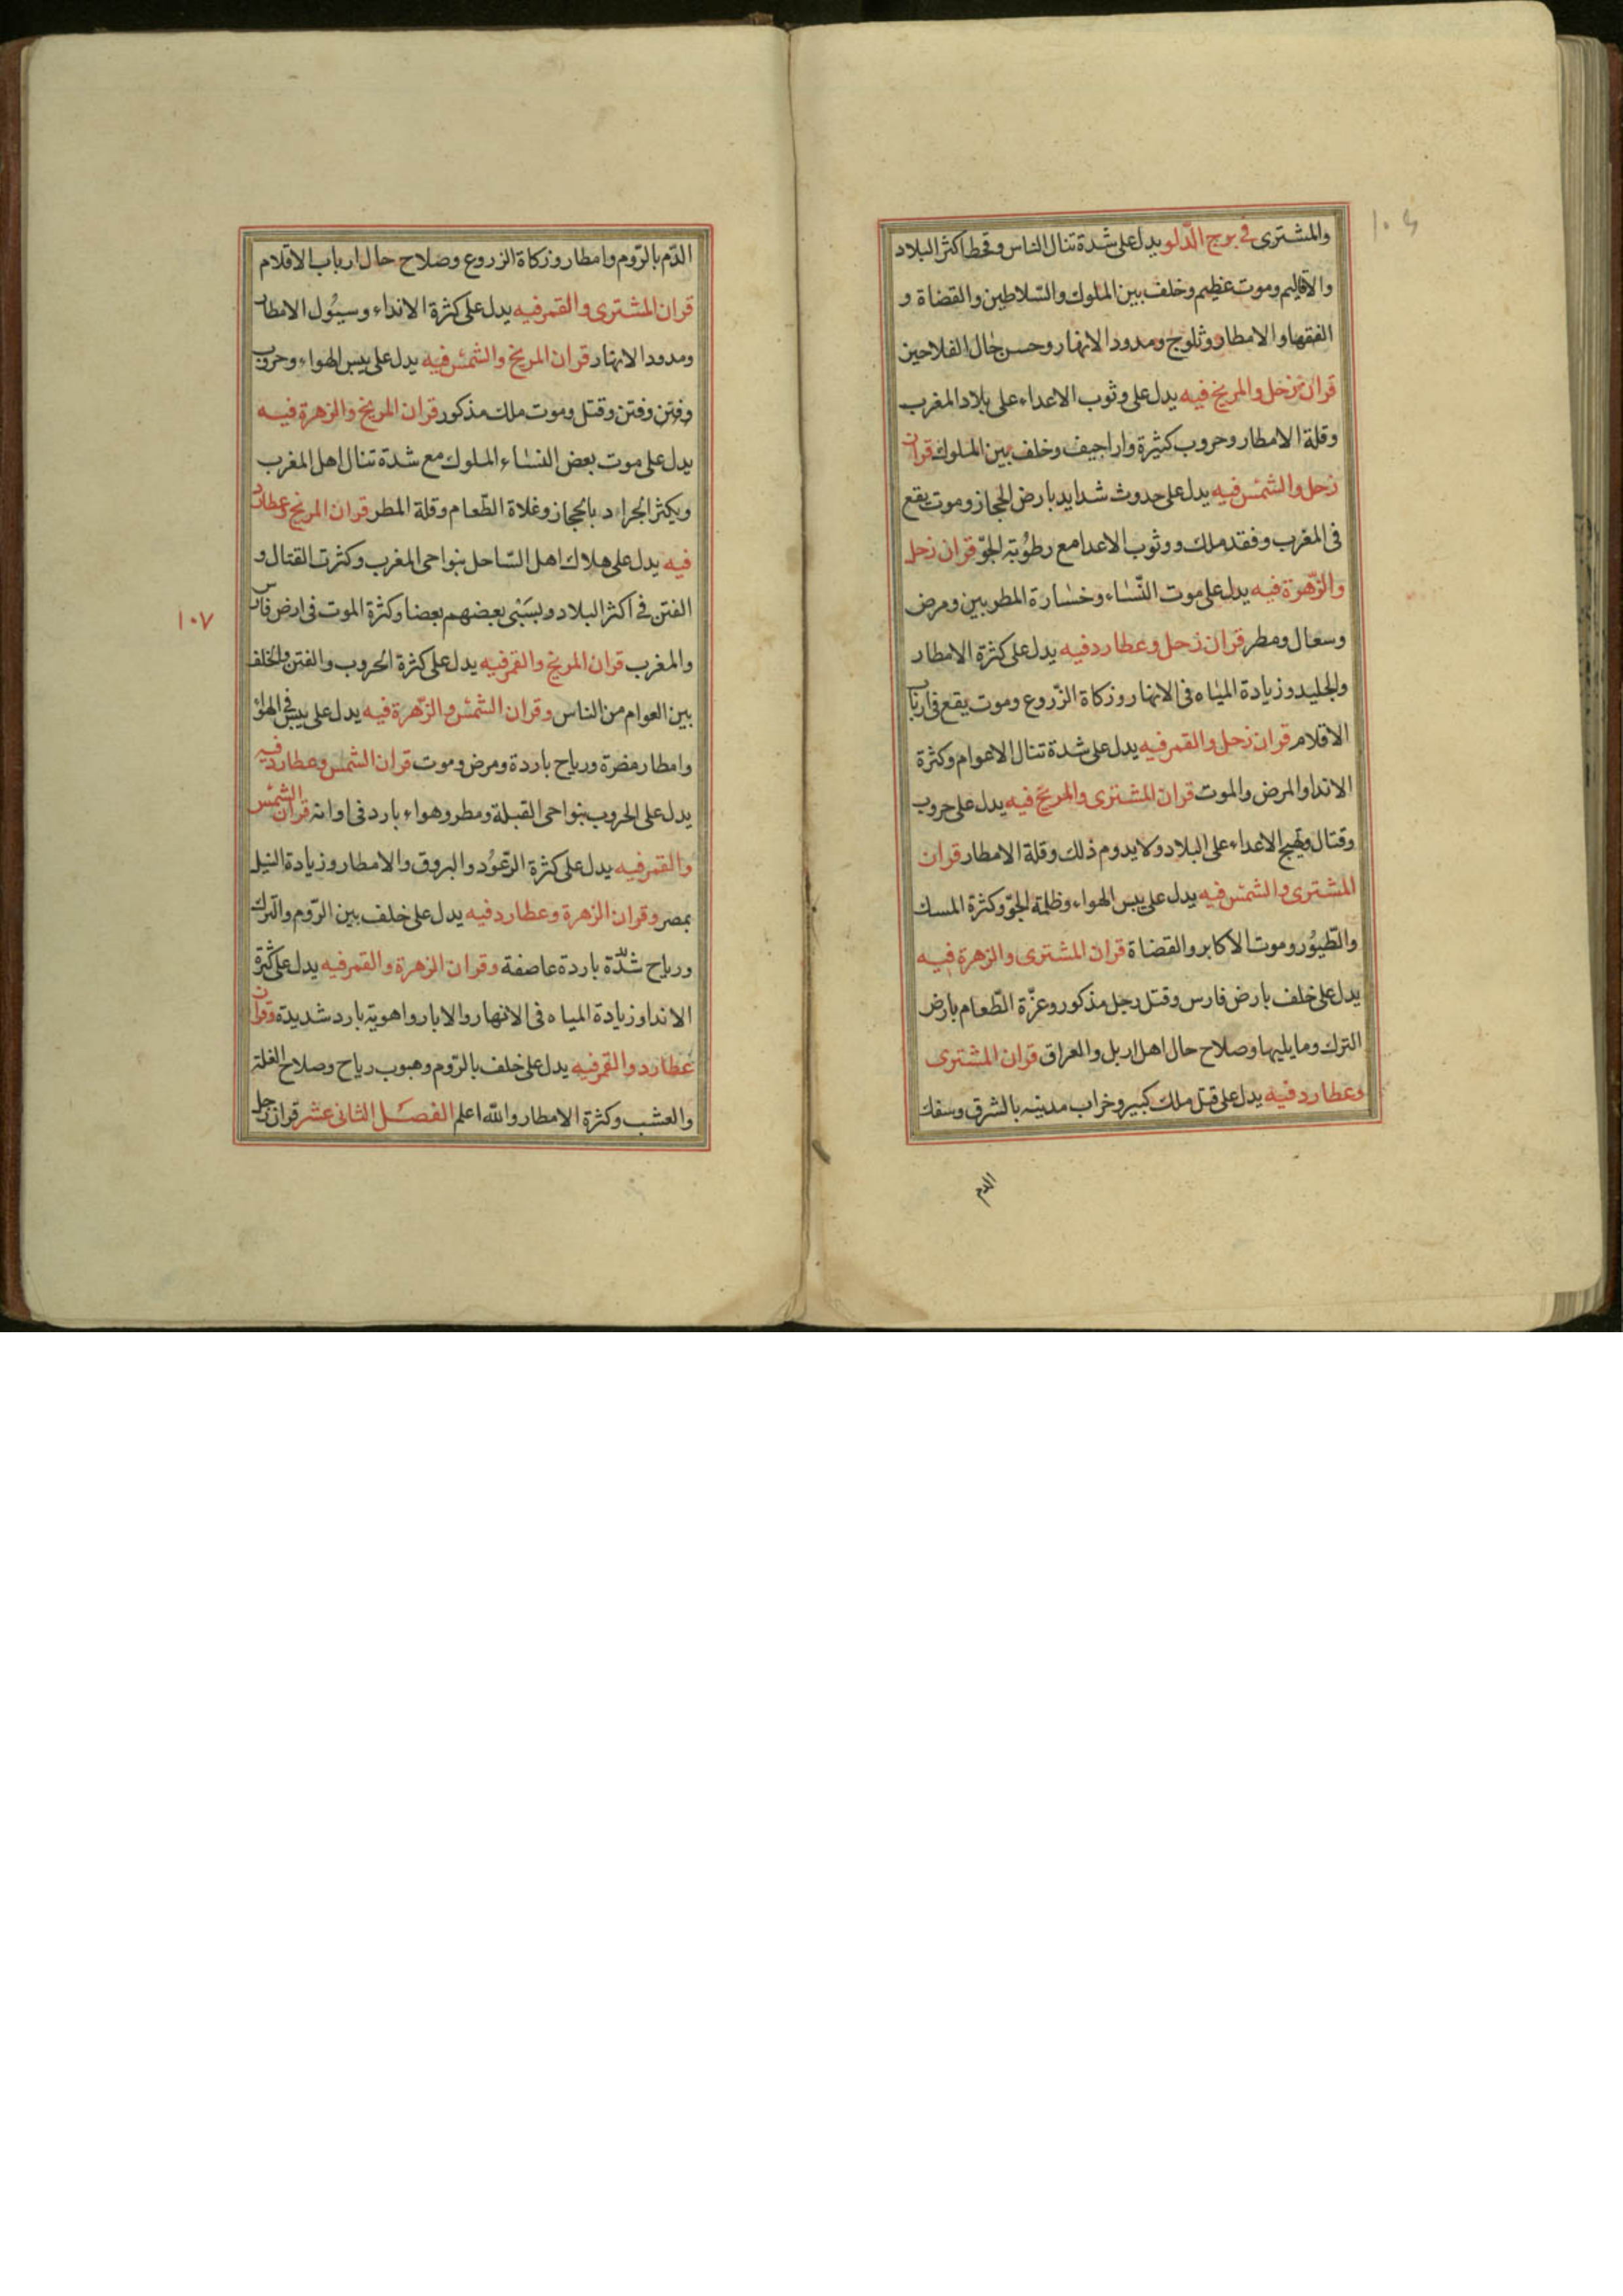 والمشترى فى برج الدّلو يدل على شدة تنال الناس وقحط اكثر البلاد
والاقاليم وموت عظيم وخلف بين الملوك والسّلاطين والقضاة و
الفقها والامطار وثلوج ومدود الانهار وحسن حال الفلاحين
قران زحل والمريخ فيه يدل على وثوب الاعداء على بلاد المغرب
وقلة الامطار وحروب كثيرة واراجيف وخلف بين الملوك قران
زحل والشمس فيه يدل على حدوث شدايد بارض الحجاز وموت يقع
فى المغرب وفقد ملك ووثوب الاعدا مع رطوبة الجوّ قران زحل
والزّهرة فيه يدل على موت النّساء وخسارة المطربين ومرض
وسعال ومطر قران زحل وعطارد فيه يدل على كثرة الامطار
والجليد وزيادة المياه فى الانهار وزكاة الزّروع وموت يقع فى ارباب
الاقلام قران زحل والقمر فيه يدل على شدة تنال الاعوام وكثرة
الاندا والمرض والموت قران المشترى والمريخ فيه يدل على حروب
وقتال وتهيج الاعداء على البلاد ولا يدوم ذلك وقلة الامطار قران
المشترى والشمس فيه يدل على يبس الهواء وظلمة الجوّ وكثرة المسك
والطّيور وموت الاكابر والقضاة قران المشترى والزهرة فيه
يدل على خلف بارض فارس وقتل رجل مذكور وعزّة الطّعام بارض
الترك وما يليها وصلاح حال اهل اربل والعراق قران المشترى
وعطارد فيه يدل على قتل ملك كبير وخراب مدينه بالشرق وسفك
الدم
الدّم بالرّوم وامطار وزكاة الزروع وصلاح حال ارباب الاقلام
قران المشترى والقمر فيه يدل على كثرة الانداء وسيول الامطار
ومدود الانهار قران المريخ والشمس فيه يدل على يبس الهواء وحروب
وفتن وفتن وقتل وموت ملك مذكور قران المريخ والزهرة فيه
يدل على موت بعض النساء الملوك مع شدة تنال اهل المغرب
ويكثر الجراد بالحجاز وغلاة الطّعام وقلة المطر قران المريخ وعطارد
فيه يدل على هلاك اهل السّاحل بنواحى المغرب وكثرت القتال و
الفتن فى اكثر البلاد ويسبى بعضهم بعضا وكثرة الموت فى ارض فارس
١٠٧
والمغرب قران المريخ والقمر فيه يدل على كثرة الحروب والفتن والخلف
بين العوام من الناس وقران الشمس والزّهرة فيه يدل على يبس فى الهوا
وامطار مضرة ورياح باردة ومرض وموت قران الشمس وعطارد فيه
يدل على الحروب بنواحى القبلة ومطر وهواء بارد فى اوانه قران الشمس
والقمر فيه يدل على كثرة الرّعود والبروق والامطار وزيادة النيل
بمصر وقران الزهرة وعطارد فيه يدل على خلف بين الرّوم والترك
ورياح شدّة باردة عاصفة وقران الزهرة والقمر فيه يدل على كثرة
الاندا وزيادة المياه فى الانهار والابار واهوية بارد شديدة وقران
عطارد والقمر فيه يدل على خلف بالرّوم وهبوب رياح وصلاح الغلة
والعشب وكثرة الامطار والله اعلم الفصل الثانى عشر قران زحل